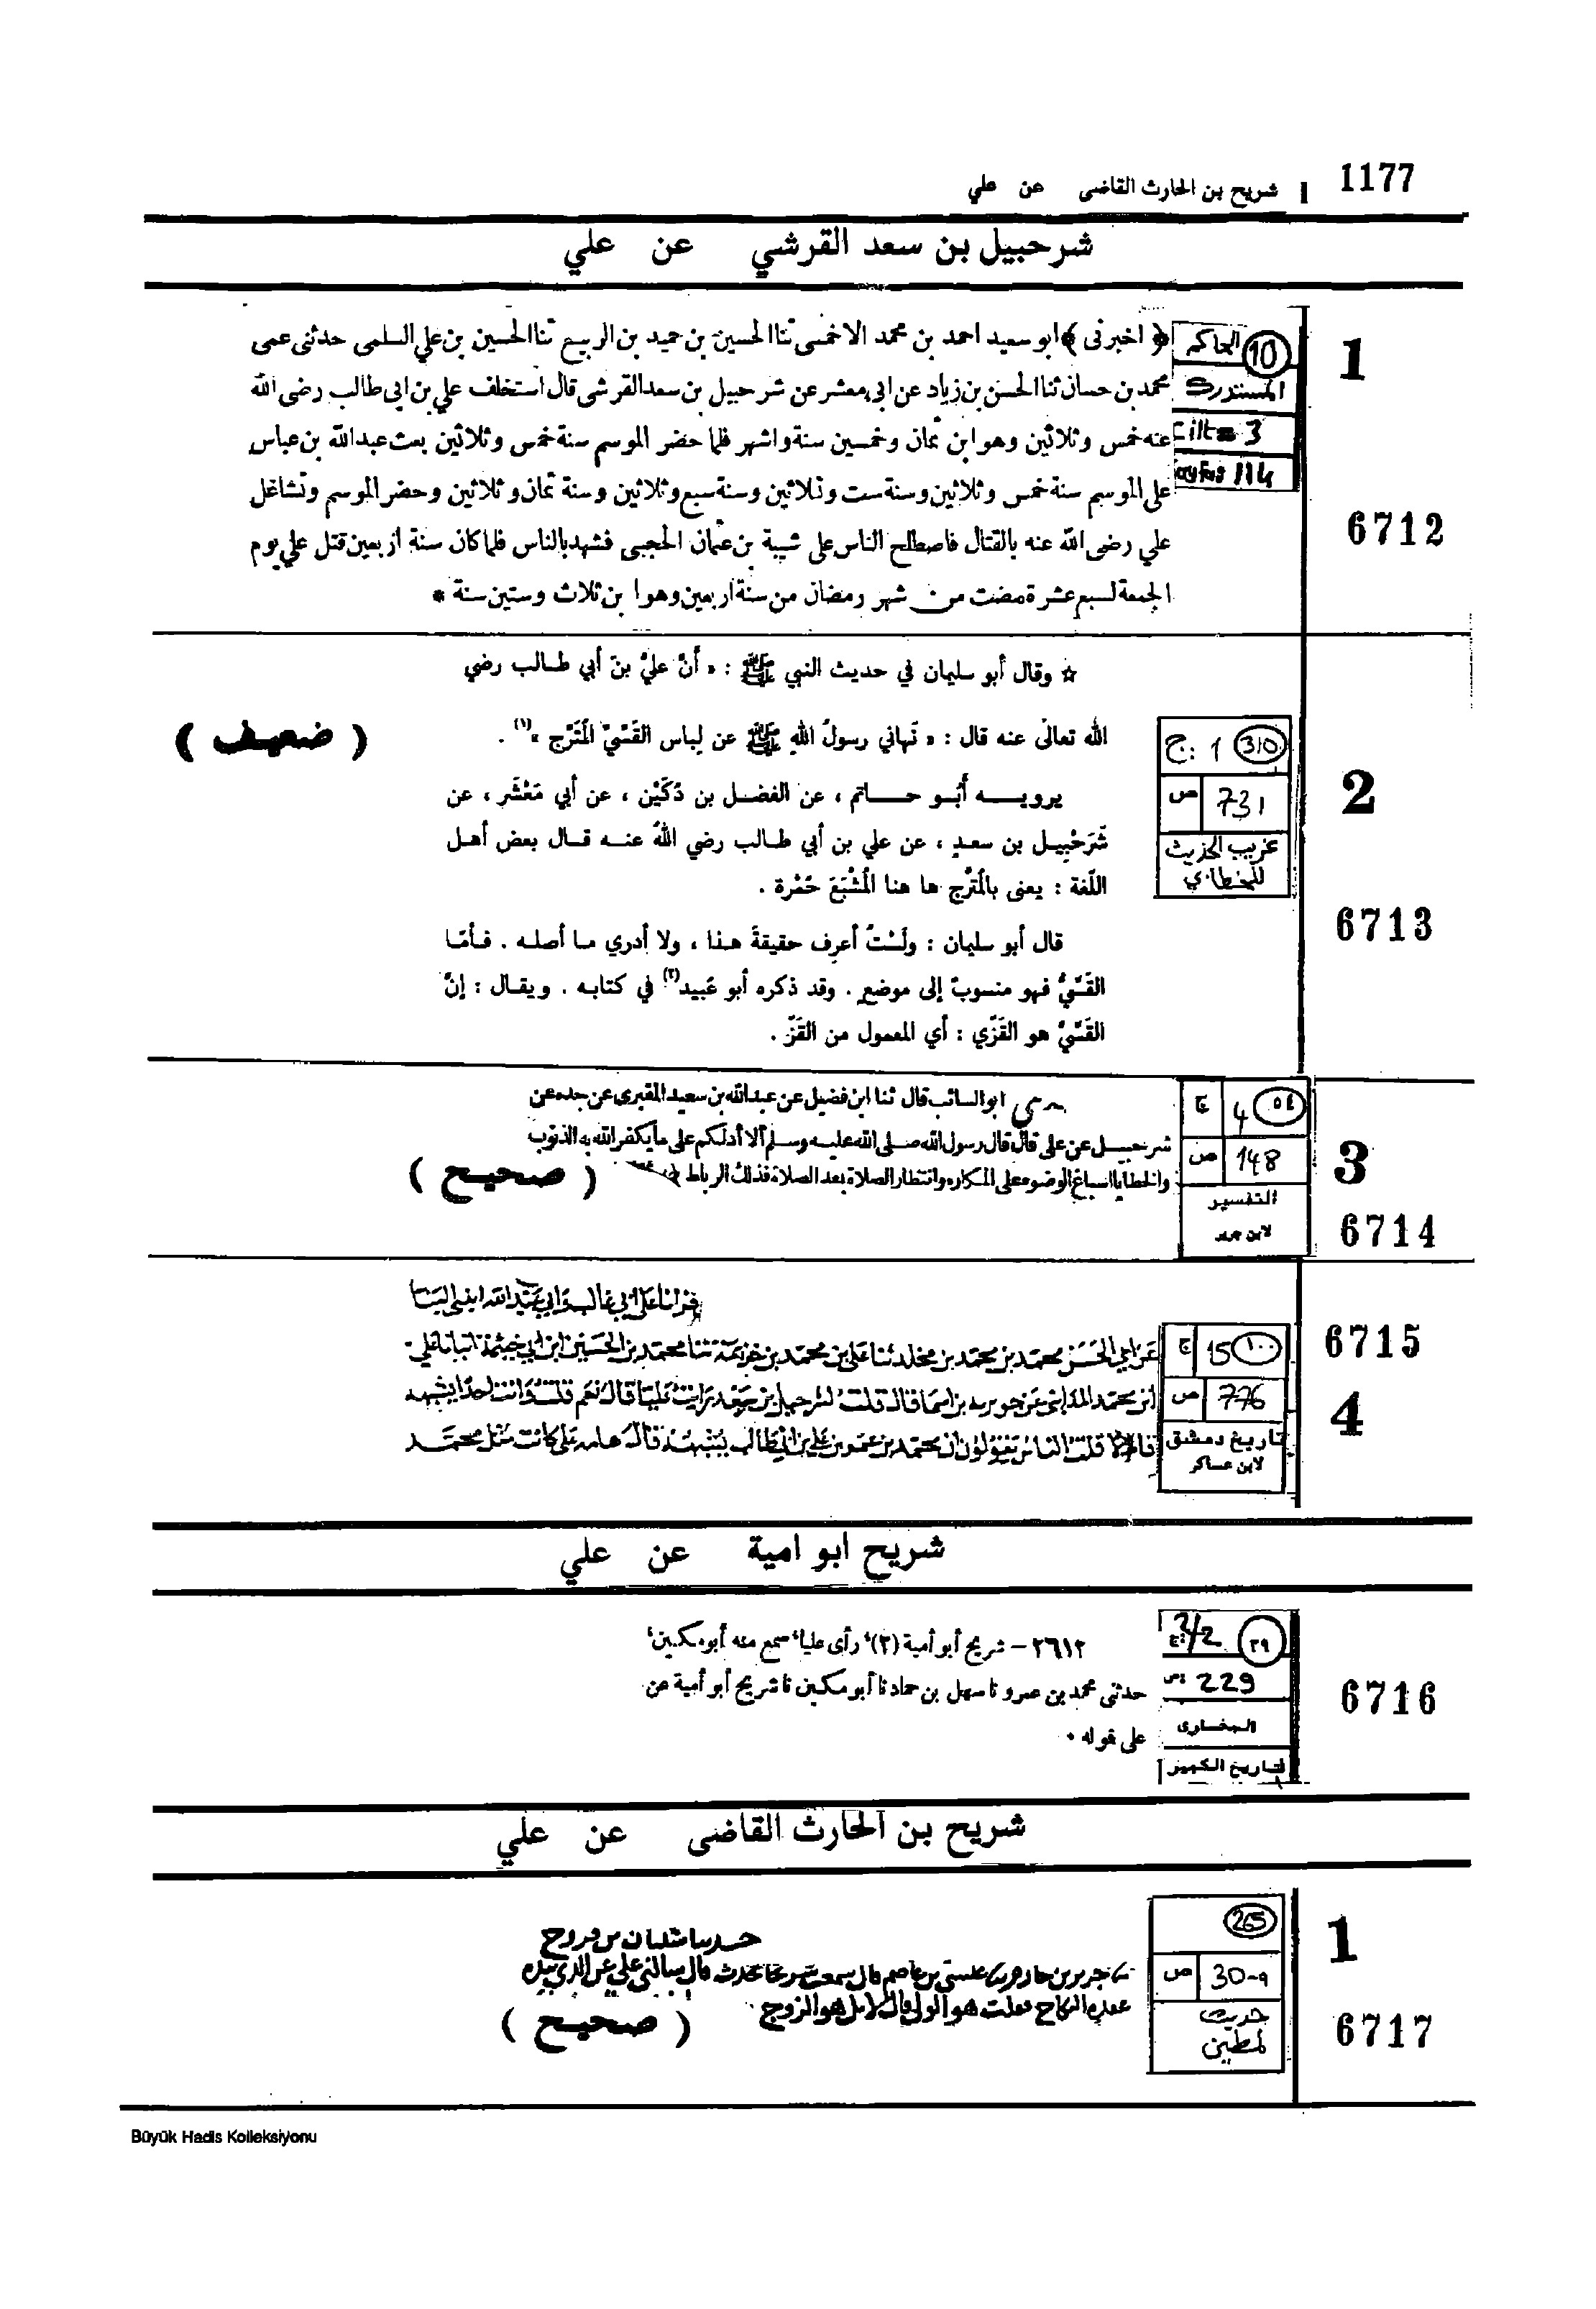 1177
شريح بن الحارث القاضى عن علي
شرحبيل بن سعد القرشي عن علي
1
6712
الحاكم 10
المستدرك
Cilt 3
114
﴿ اخبرنى ﴾ ابو سعيد احمد بن محمد الاخمسى ثنا الحسين بن حميد بن الربيع ثنا الحسين بن علي السلمى حدثنى عمى
محمد بن حسان ثنا الحسن بن زياد عن ابى معشر عن شرحبيل بن سعد القرشى قال استخلف علي بن ابى طالب رضى الله
عنه خمس وثلاثين وهو ابن ثمان وخمسين سنة واشهر فلما حضر الموسم سنة خمس وثلاثين بعث عبد الله بن عباس
على الموسم سنة خمس وثلاثين وسنة ست وثلاثين وسنة سبع وثلاثين وسنة ثمان وثلاثين وحضر الموسم وتشاغل
علي رضى الله عنه بالقتال فاصطلح الناس على شيبة بن عثمان الحجبى فشهد بالناس فلما كان سنة اربعين قتل علي يوم
الجمعة لسبع عشرة مضت من شهر رمضان من سنة اربعين وهو ابن ثلاث وستين سنة *
2
6713
ج: 1 310
ص 731
غريب الحديث
للخطابي
☆ وقال أبو سليمان في حديث النبي ﷺ : « أنّ عليّ بن أبي طالب رضي
الله تعالى عنه قال : « نَهاني رسولُ الله ﷺ عن لِباس القَسّيّ المُتَرّج »(١) .
( ضعيف )
يرويه أبو حاتم ، عن الفضل بن دُكَيْن ، عن أبي مَعْشَر ، عن
شُرَحْبيل بن سعدٍ ، عن علي بن أبي طالب رضي اللهُ عنه قال بعض أهل
اللّغة : يعنى بالمُتَرّج ها هنا المُشْبَعَ حُمْرة .
قال أبو سليمان : ولَسْتُ أعرف حقيقةَ هذا ، ولا أدري ما أصله . فأمّا
القَسّيُّ فهو منسوبٌ إلى موضع . وقد ذكره أبو عُبيد(٢) في كتابه . ويقال : إنّ
القَسّيّ هو القَزّي : أي المعمول من القَزّ .
3
6714
ج 4 ٥٤
ص 148
التفسير
لابن جرير
ابو السائب قال ثنا ابن فضيل عن عبد الله بن سعيد المقبرى عن جده عن
شرحبيل عن على قال قال رسول الله صلى الله عليه وسلم ألا أدلكم على ما يكفر الله به الذنوب
والخطايا اسباغ الوضوء على المكاره وانتظار الصلاة بعد الصلاة فذلك الرباط
( صحيح )
6715
4
ج 15 ١٠٠
ص 776
تاريخ دمشق
لابن عساكر
قرانا على ابي غالب وابي عبد الله ابني البنا
عن ابي الحسن محمد بن محمد بن مخلد ثنا علي بن محمد بن خزيمة ثنا محمد بن الحسين ابن ابي خيثمة انبانا علي
ابن محمد المدايني عن جويرية بن اسما قال قلت لشرحبيل بن سعد رايت عليا قال نعم قلت وانت احدا يشبهه
قال لا قلت الناس يقولون ان محمد بن عمر بن علي بن ابي طالب يشبهه قال هامه علي كانت مثل محمد
شريح ابو امية عن علي
6716
ج: 2/2 ٢٩
ص: 229
البخارى
التاريخ الكبير
٢٦١٢ – شريح أبو أمية (٢)، رأى عليا، سمع منه أبو مكين،
حدثنى محمد بن عمرو نا سهل بن حماد نا أبو مكين نا شريح أبو أمية عن
على قوله .
شريح بن الحارث القاضى عن علي
1
6717
265
ص 30-9
حديث
لمطين
حدثنا شيبان بن فروخ
نا جرير بن حازم نا عيسى بن عاصم قال سمعت شريحا يحدث قال سالني علي عن الذي بيده
عقدة النكاح فقلت هو الولي قال لا بل هو الزوج
( صحيح )
Büyük Hadis Kolleksiyonu